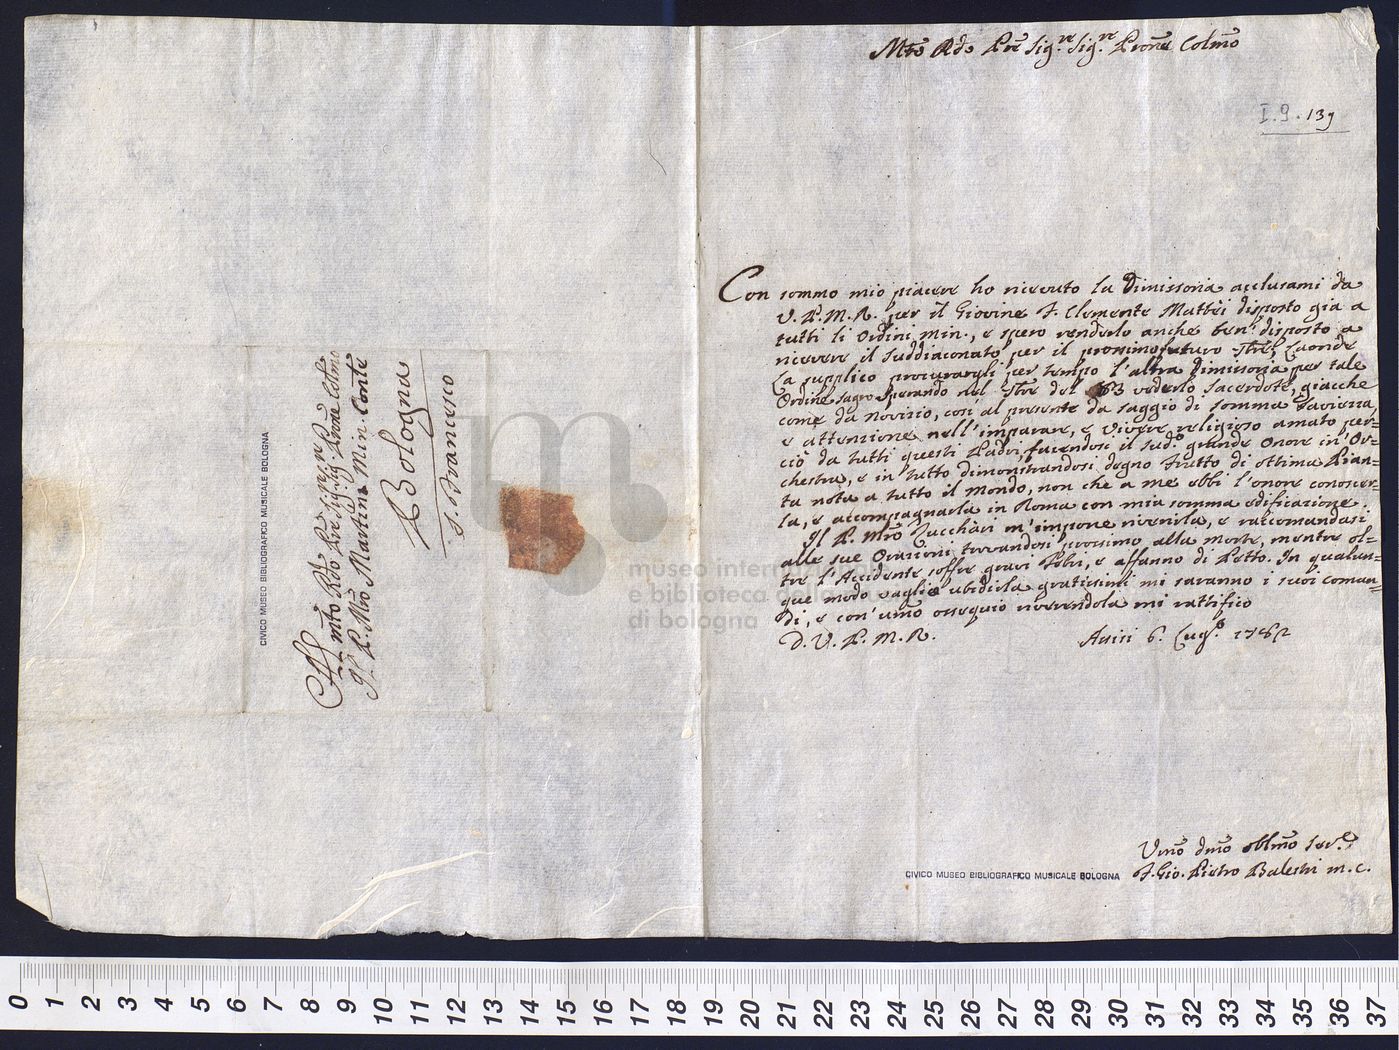 Mto Rdo Pre Sig.re Sig.re Prone Colmo
I.9.139
Con sommo mio piacere ho ricevuto la Dimissoria acclusami da
V. P. M. R. per il Giovine F. Clemente Mattei disposto già a
tutti li Ordini min., e spero renderlo anche ben' disposto a
ricevere il Suddiaconato per il prossimo futuro 7bre, Laonde
La supplico procurargli per tempo l'altra Dimissoria per tale
Ordine sagro sperando nel 7bre del 63 vederlo Sacerdote, giacche
come da novizio, così al presente da saggio di somma saviezza,
e attenzione nell'imparare, e vivere religioso amato per=
ciò da tutti questi Padri, facendosi il sud.o grande onore in Or=
chestra, e in tutto dimostrandosi degno frutto di ottima Pian=
ta nota a tutto il mondo, non che a me ebbi l'onore conoscer=
la, e accompagnarla in Roma con mia somma edificazione.
Il P. Mro Zucchari m'impone riverirla, e raccomandasi
alle sue Orazioni trovandosi prossimo alla morte, mentre ol=
tre l'Accidente soffre gravi Febri, e affanno di Petto. In qualun=
que modo vaglia ubidirla gratissimi mi saranno i suoi coman=
di, e con' umo ossequio riverendola mi rattifico
D. V. P. M. R. Assisi 6. Lug.o 1762
Umo dmo obblmo ser.e
F. Gio. Pietro Balestri m.c.
CIVICO MUSEO BIBLIOGRAFICO MUSICALE BOLOGNA
Al mto Rdo Pre Sig.re Sig.re Prone Colmo
Il P. Mro Martini Min. Conle
Bologna
S. Francesco
CIVICO MUSEO BIBLIOGRAFICO MUSICALE BOLOGNA
museo internazionale
e biblioteca della musica
di bologna
0 1 2 3 4 5 6 7 8 9 10 11 12 13 14 15 16 17 18 19 20 21 22 23 24 25 26 27 28 29 30 31 32 33 34 35 36 37